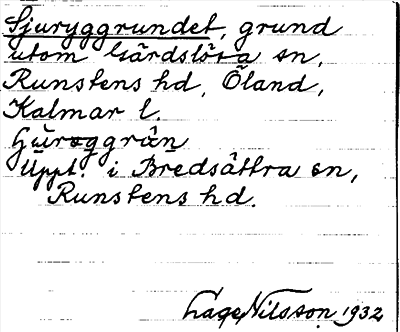 Sjuryggrundet, grund
utom Gärdslösa sn,
Runstens hd, Öland,
Kalmar l.
Uppt. i Bredsättra sn,
Runstens hd.
Lage Nilsson 1932